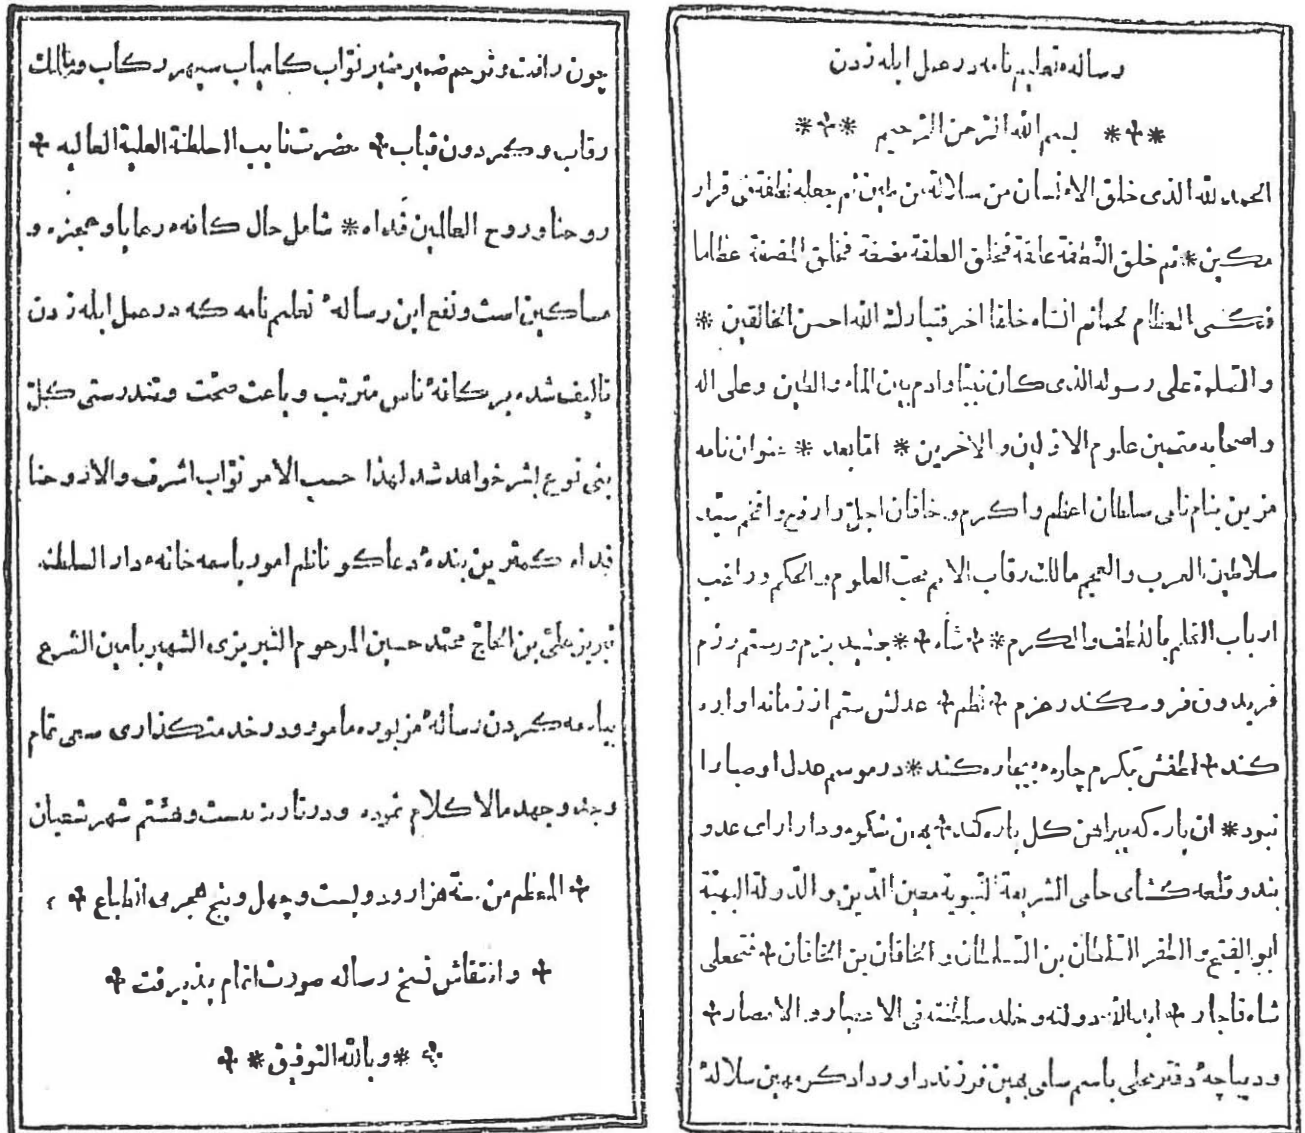 رساله تعلیم نامه در عمل ابله زدن
بسم الله الرحمن الرحیم
الحمد لله الذی خلق الانسان من سلالة من طین ثم جعله نطفة فی قرار
مکین * ثم خلق النطفة علقة فخلق العلقة مضغة فخلق المضغة عظاما
فکسی العظام لحما ثم انشاه خلقا اخر فتبارك الله احسن الخالقین *
والصلوة علی رسوله الذی کان نبیا وادم بین الماء والطین وعلی اله
واصحابه متممین علوم الاولین والاخرین * اما بعد * عنوان نامه
مزین بنام نامی سلطان اعظم واکرم وخاقان اجل وارفع وافخم سید
سلاطین العرب والعجم مالك رقاب الامم محب العلوم والحکم وراغب
ارباب القلم باللطف والکرم * شاه * جمشید بزم ورستم رزم
فریدون فر وسکندر عزم نظم عدلش ستم از زمانه اواره
کند لطفش بکرم چاره بیچاره کند * در موسم عدل او صبا را
نبود * ان یاره که پیراهن کل پاره کند بهمن شکوه ودارا رای عدو
بند وقلعه کشای حامی الشریعة النبویة معین الدین والدولة البهیة
ابو الفتح والظفر السلطان بن السلطان والخاقان بن الخاقان فتحعلی
شاه قاجار اید الله دولته وخلد سلطنته فی الاعصار والامصار
ودیباچهٔ دفتر محلی باسم سامی بهین فرزند داور دادکر مهین سلالهٔ
چون رافت وترحم ضمیر منیر نواب کامیاب سپهر رکاب ومالك
رقاب وکردون قباب حضرت نایب السلطنة العلیة العالیه
روحنا وروح العالمین فداه * شامل حال کافه رعایا وعجزه و
مساکین است ونفع این رسالهٔ تعلیم نامه که در عمل ابله زدن
تالیف شده بر کافهٔ ناس مترتب وباعث صحت وتندرستی کل
بنی نوع بشر خواهد شد لهذا حسب الامر نواب اشرف والا روحنا
فداه کمترین بندهٔ دعاکو ناظم امور باسمه خانه دار السلطنه
تبریز علی بن الحاج محمد حسین المرحوم التبریزی الشهیر بامین الشرع
بباسمه کردن رسالهٔ مزبوره مامور ودر خدمتکذاری سعی تمام
وجد وجهد مالا کلام نموده ودر تاریخ بیست وهشتم شهر شعبان
المعظم من سنة هزار ودویست وچهل وپنج هجری انطباع
وانتقاش نسخ رساله صورت اتمام پذیرفت
* وبالله التوفیق *